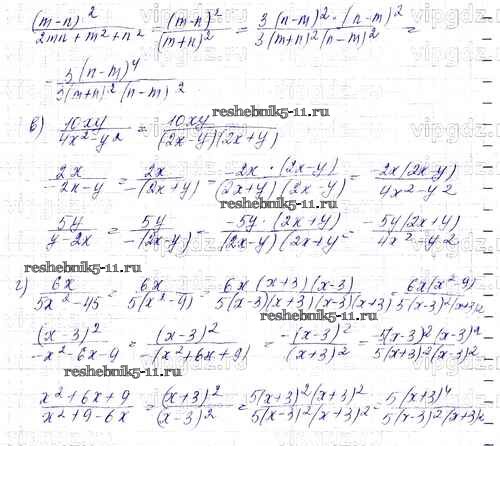 (m-n)²/(2mn+m²+n²) = (m-n)²/(m+n)² = 3(n-m)²·(n-m)²/(3(m+n)²(n-m)²) =
= 3(n-m)⁴/(3(m+n)²(n-m)²)
reshebnik5-11.ru
в) 10xy/(4x²-y²) = 10xy/((2x-y)(2x+y))
2x/(-2x-y) = 2x/(-(2x+y)) = -2x·(2x-y)/((2x+y)(2x-y)) = -2x(2x-y)/(4x²-y²)
5y/(y-2x) = 5y/(-(2x-y)) = -5y·(2x+y)/((2x-y)(2x+y)) = -5y(2x+y)/(4x²-y²)
reshebnik5-11.ru
г) 6x/(5x²-45) = 6x/(5(x²-9)) = 6x(x+3)(x-3)/(5(x-3)(x+3)(x-3)(x+3)) = 6x(x²-9)/(5(x-3)²(x+3)²)
reshebnik5-11.ru
(x-3)²/(-x²-6x-9) = (x-3)²/(-(x²+6x+9)) = -(x-3)²/(x+3)² = -5(x-3)²(x-3)²/(5(x+3)²(x-3)²)
(x²+6x+9)/(x²+9-6x) = (x+3)²/(x-3)² = 5(x+3)²(x+3)²/(5(x-3)²(x+3)²) = 5(x+3)⁴/(5(x-3)²(x+3)²)
reshebnik5-11.ru